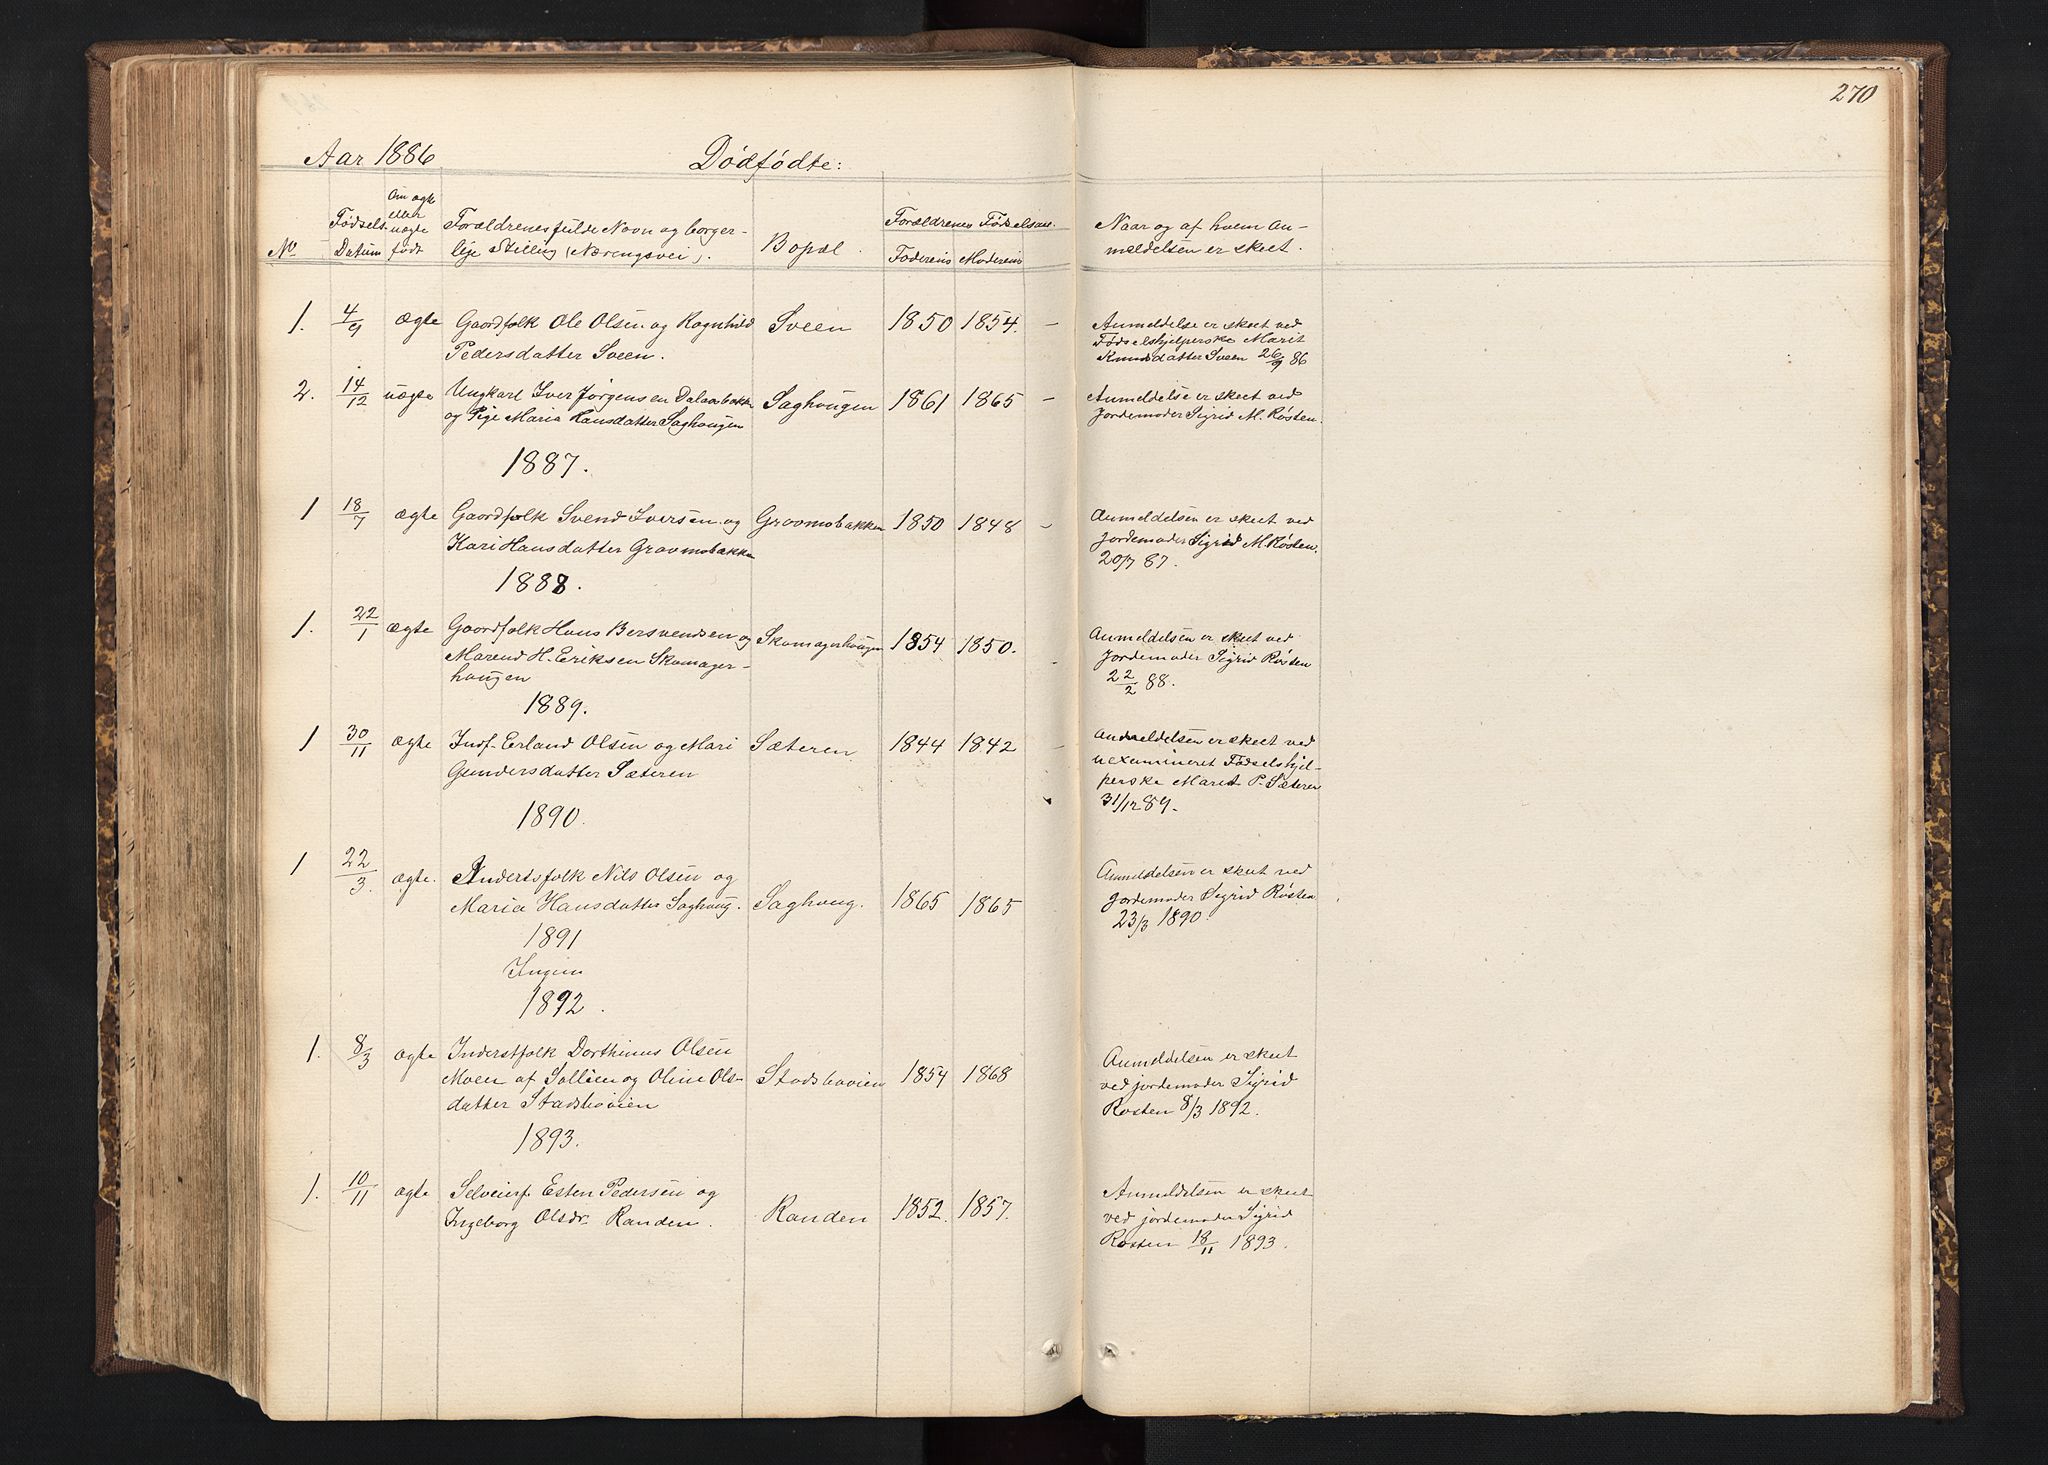 270
Aar 1886 Dødfødte:
No
Fødsels-
Datum
Om ægte
eller
uægte
født
Forældrenes fulde Navn og borger-
lige Stilling (Næringsvei).
Bopæl.
Forældrenes Fødselsaar.
Faderens Moderens
Naar og af hvem An-
meldelsen er skeet.
1. 4/9 ægte Gaardfolk Ole Olsen og Ragnhild Sveen 1850 1854. –
Pedersdatter Sveen.
Anmeldelse er skeet ved
Fødselshjelperske Marit
Knudsdatter Sveen 26/9 86
2. 14/12 uægte Ungkarl Iver Jørgensen Dalaasbakke Saghougen 1861 1865 –
og Pige Maria Hansdatter Saghougen
Anmeldelse er skeet ved
Jordemoder Sigrid M. Røsten.
1887.
1 18/7 ægte Gaardfolk Svend Iversen og Graomsbakken 1850 1848 –
Kari Hansdatter Graomsbakken
Anmeldelsen er skeet ved
Jordemoder Sigrid M. Røsten.
20/7 87.
1888.
1. 22/1 ægte Gaardfolk Hans Bersvendsen og Skomagerhougen 1854 1850.
Marend H. Eriksen Skomager-
hougen
Anmeldelsen er skeet ved
Jordemoder Sigrid Røsten
22/2 88.
1889.
1 30/11 ægte Indf. Erland Olsen og Mari Sæteren 1844 1842 –
Gundersdatter Sæteren
Anmeldelsen er skeet ved
uexamineret Fødselshjel-
perske Marit P. Sæteren
31/12 89.
1890.
1 22/3. ægte. Inderstfolk Nils Olsen og
Maria Hansdatter Saghoug. Saghoug. 1865 1865
Anmeldelsen er skeet ved
Jordemoder Sigrid Røsten
23/3 1890.
1891
Ingen
1892.
1. 8/3 ægte Inderstfolk Dorthinus Olsen
Moen af Sollien og Oline Ols- Stadshøien 1854 1868
datter Stadshøien
Anmeldelsen er skeet
ved jordemoder Sigrid
Røsten 8/3 1892.
1893.
1. 10/11 ægte Selveierf. Esten Pedersen og
Ingeborg Olsdr. Randen. Randen 1852. 1857.
Anmeldelsen er skeet
ved jordemoder Sigrid
Røsten 18/11 1893.